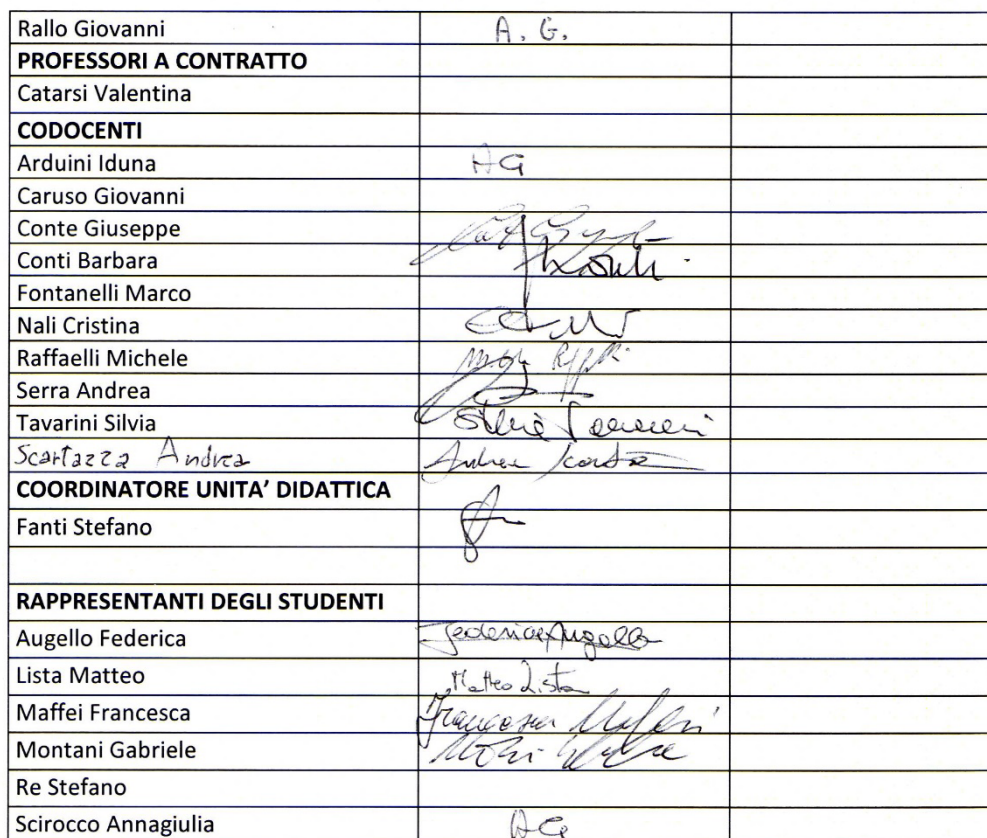 Rallo Giovanni A. G.
PROFESSORI A CONTRATTO
Catarsi Valentina
CODOCENTI
Arduini Iduna AG
Caruso Giovanni
Conte Giuseppe
Conti Barbara
Fontanelli Marco
Nali Cristina
Raffaelli Michele
Serra Andrea
Tavarini Silvia Silvia Tavarini
Scartazza Andrea Andrea Scartazza
COORDINATORE UNITA' DIDATTICA
Fanti Stefano
RAPPRESENTANTI DEGLI STUDENTI
Augello Federica Federica Augello
Lista Matteo Matteo Lista
Maffei Francesca Francesca Maffei
Montani Gabriele
Re Stefano
Scirocco Annagiulia AG